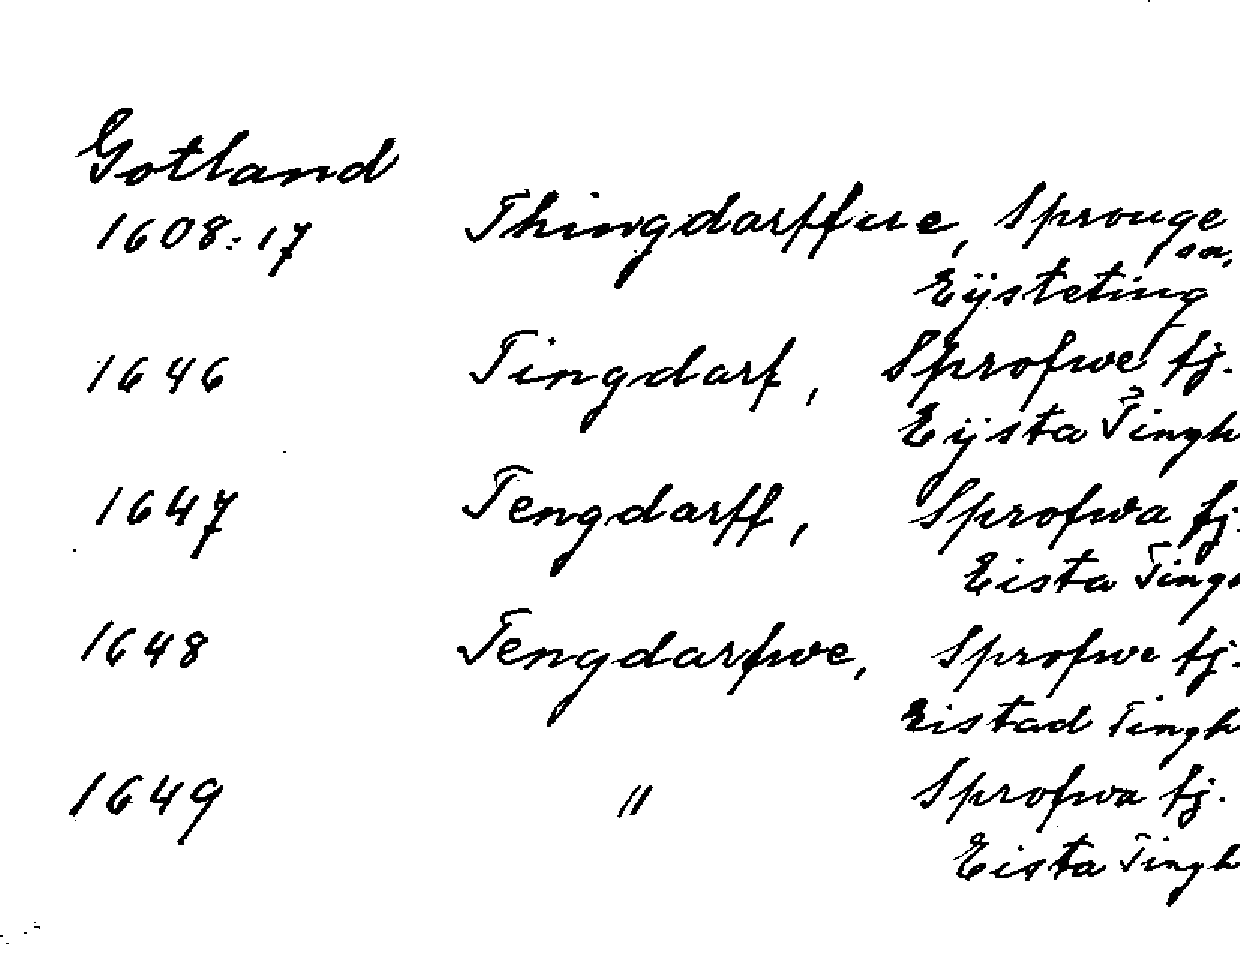 Gotland
1608:17 Thingdarffue, Sprouge
sn,
Eijsteting
1646 Tingdarf, Sprofwe fj.
Eijsta Tingh
1647 Tengdarff, Sprofwa fj.
Eista Ting
1648 Tengdarfwe, Sprofwe fj.
Eistad Tingh
1649 " Sprofwa fj.
Eista Tingh